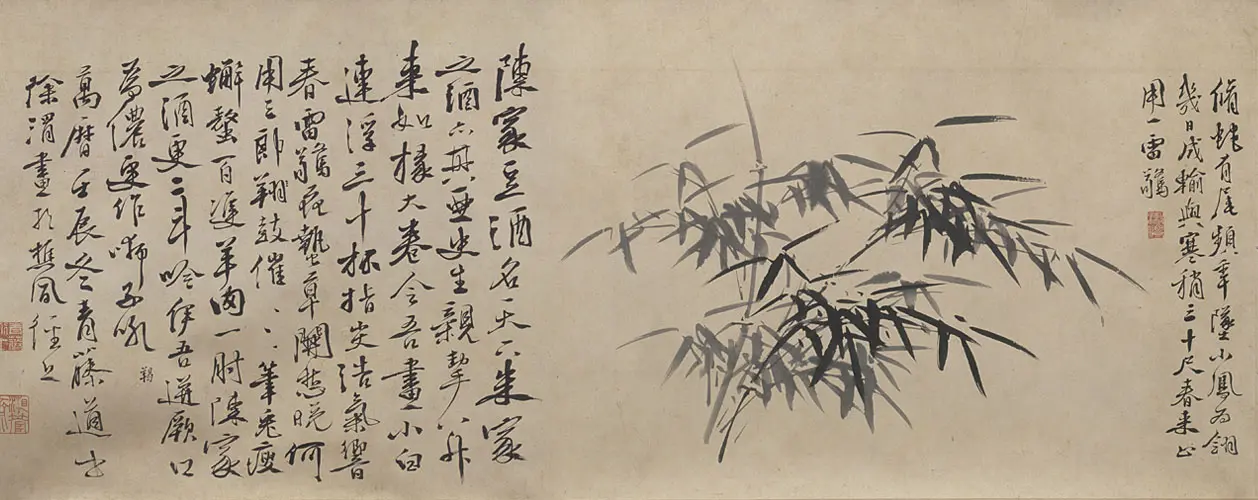 脩蛇有尾頻年墜小鳳為翎
幾日成輸與寒稍三十尺春來止
用一雷驚
陳家豆酒名天下朱家
之酒亦其亞史生親挈八升
來如椽大卷令吾畫小白
連浮三十杯指尖浩氣響
春雷驚花蟄草開愁晚何
用三郎翔鼓催〻〻筆兔瘦
蠏螯百隻羊肉一肘陳家
之酒更二斗吟伊吾迸厥口
為儂更作獅子吼 羯
萬曆壬辰冬青藤道士
徐渭畫於樵風徑上